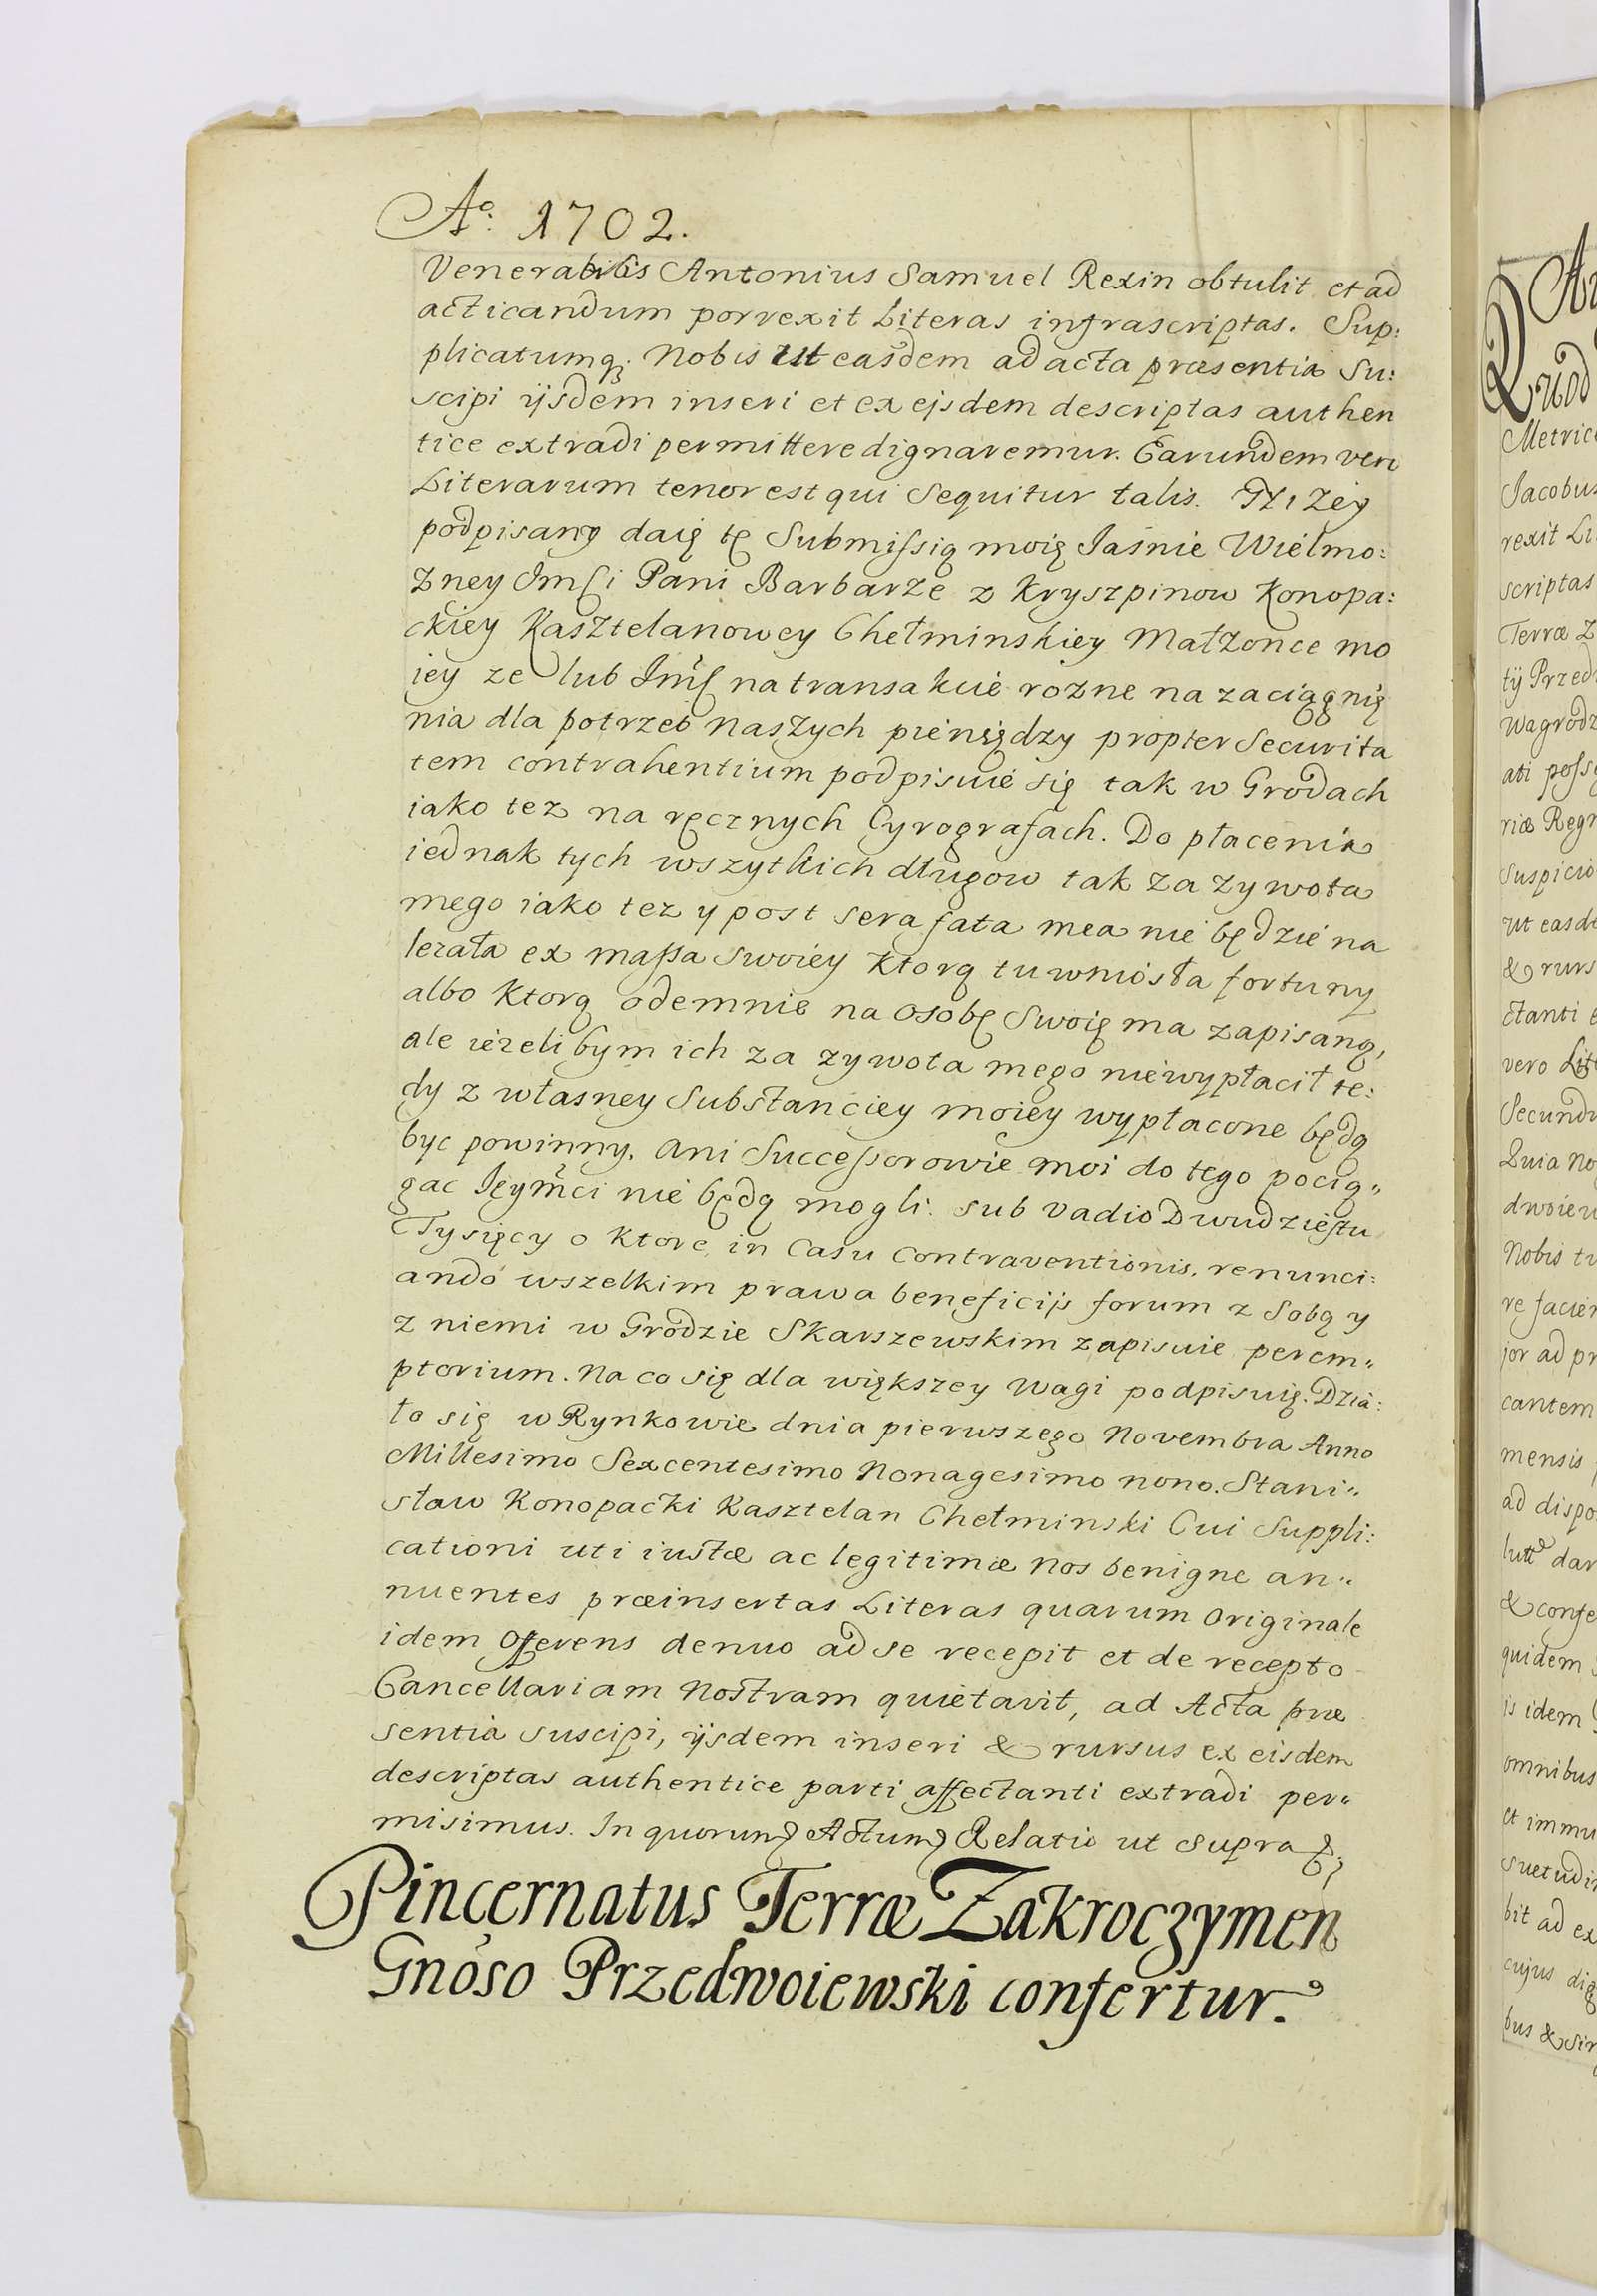 Aº. 1702.
Venerabilis Antonius Samuel Rexin obtulit et ad
acticandum porrexit Literas infrascriptas. Sup:
plicatumq; Nobis ut easdem ad acta præsentia Su:
scipi ijsdem inseri et ex ejsdem descriptas authen
tice extradi permittere dignaremur. Earundem vero
Literarum tenor est qui Sequitur talis. Ja niżey
podpisany daię tę Submissią moię Jaśnie Wielmo:
żney Jmści Pani Barbarze z Kryszpinow Konopa:
ckiey Kasztelanowey Chełminskiey Małżonce mo
iey ze lub Jmść na transakcie rozne na zaciągnię
nia dla potrzeb naszych pieniędzy propter Securita
tem contrahentium podpisuie się tak w Grodach
iako tez na ręcznych Cyrografach. Do płacenia
iednak tych wszytkich długow tak za zywota
mego iako tez y post sera fata mea nie będzie na
lezała ex massa swoiey ktorą tu wniosła fortuny
albo ktorą odemnie na osobę Swoię ma zapisaną,
ale iezeli bym ich za zywota mego niewypłacił te:
dy z własney Substanciey moiey wypłacone będą
byc powinny. ani Successorowie moi do tego pocią"
gac Ieymci nie będą mogli. sub vadio Dwudziestu
Tysięcy o ktore in Casu Contraventionis, renunci:
ando wszelkim prawa beneficijs forum z Sobą y
z niemi w Grodzie Skarszewskim zapisuie perem"
ptorium. Na co się dla większey wagi podpisuię. Dzia:
ło się w Rynkowie dnia pierwszego Novembra Anno
Millesimo Sexcentesimo Nonagesimo nono. Stani"
sław Konopacki Kasztelan Chełminski Cui Suppli:
cationi uti iustæ ac legitimæ Nos benigne an"
nuentes præinsertas Literas quarum Originale
idem Offerens denuo ad se recepit et de recepto
Cancellariam Nostram quietavit, ad Acta præ
sentia suscipi, ijsdem inseri & rursus ex eisdem
descriptas authentice parti affectanti extradi per"
misimus. In quorum Actum Relatio ut supra
Pincernatus Terræ Zakroczymen
Gnoso Przedwoiewski confertur.